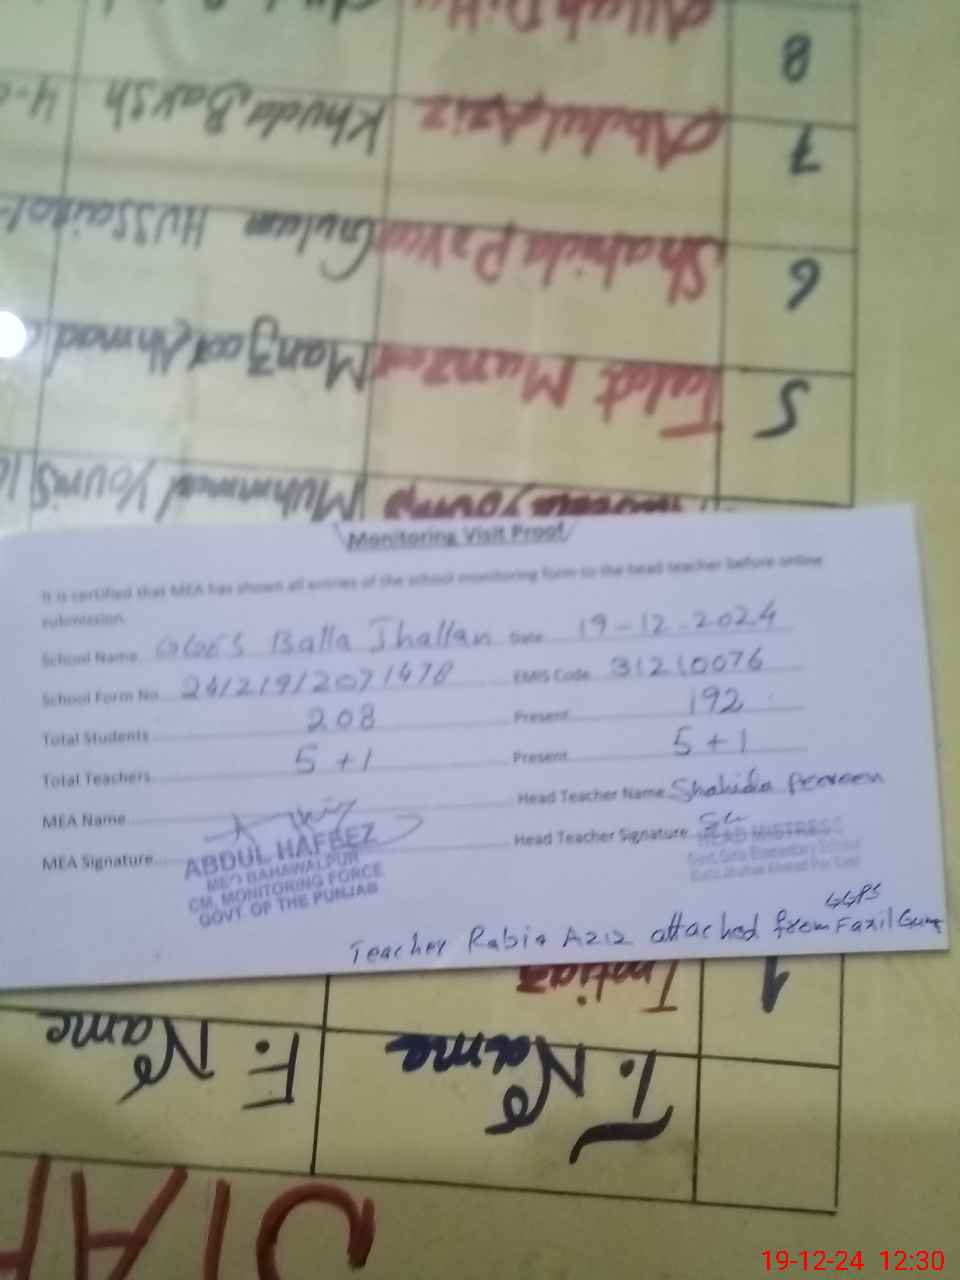 8
Abdul Aziz Khuda Baksh 4-
7
Shahida Gulam Hussain
6
Talat Manzoor Ahmad
5
Monitoring Visit Proof
It is certified that MEA has shown all entries of the school monitoring form to the head teacher before online
submission.
School Name Balla Jhallan Date 19-12-2024
School Form No 24121912071478 EMIS Code 31210076
Total Students 208 Present 192
Total Teachers 5+1 Present 5+1
MEA Name Head Teacher Name Shahida Perveen
MEA Signature Head Teacher Signature
ABDUL HAFEEZ
MEO BAHAWALPUR
CM, MONITORING FORCE
GOVT. OF THE PUNJAB
HEAD MISTRESS
Govt. Girls Elementary School
GGPS
Teacher Rabia Aziz attached from Fazil
Imtiaz 1
T. Name F. Name
STAF
19-12-24 12:30